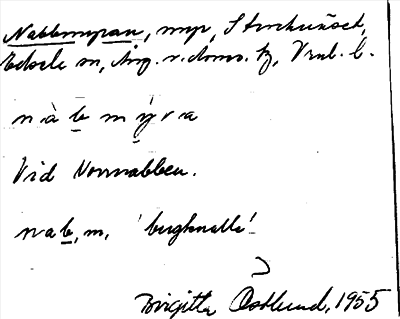 Nabbmyran, myr, Storkusöct,
Edsele sn, Ång. v. doms. tg, Vnl. l.
nàb mýra
Vid Norrnabben.
nab, m, 'bergknalle'
Birgitta Östlund, 1955